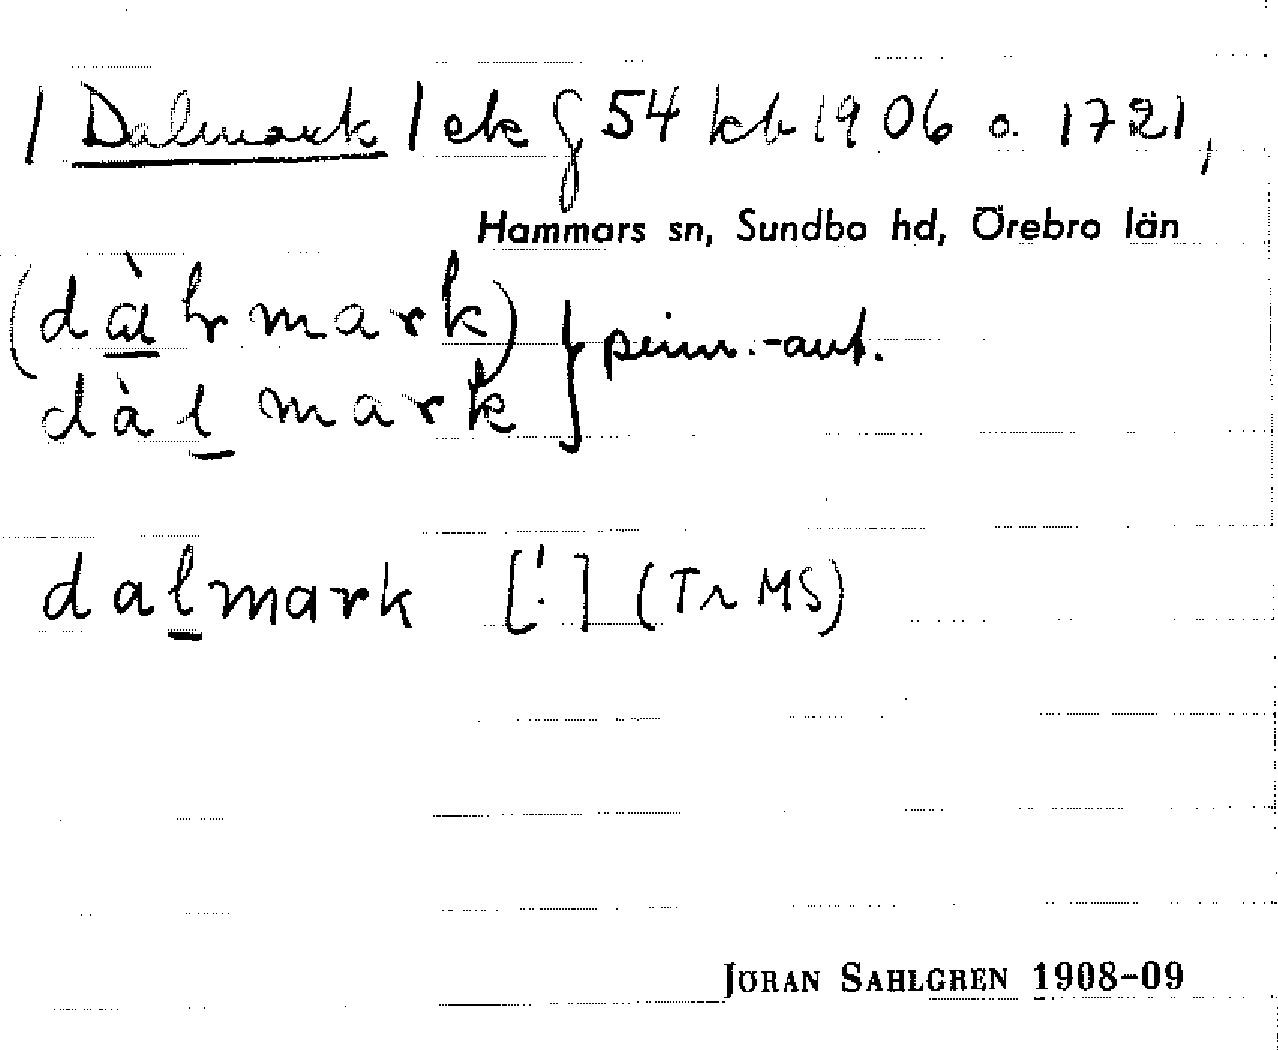 / Dalmark / ek g 54 kb 1906 o. 1721,
Hammars sn, Sundbo hd, Örebro län
(dàlrmark)
dàlmark } pinn.-aut.
dalmark [!] (Tr MS)
JÖRAN SAHLGREN 1908-09